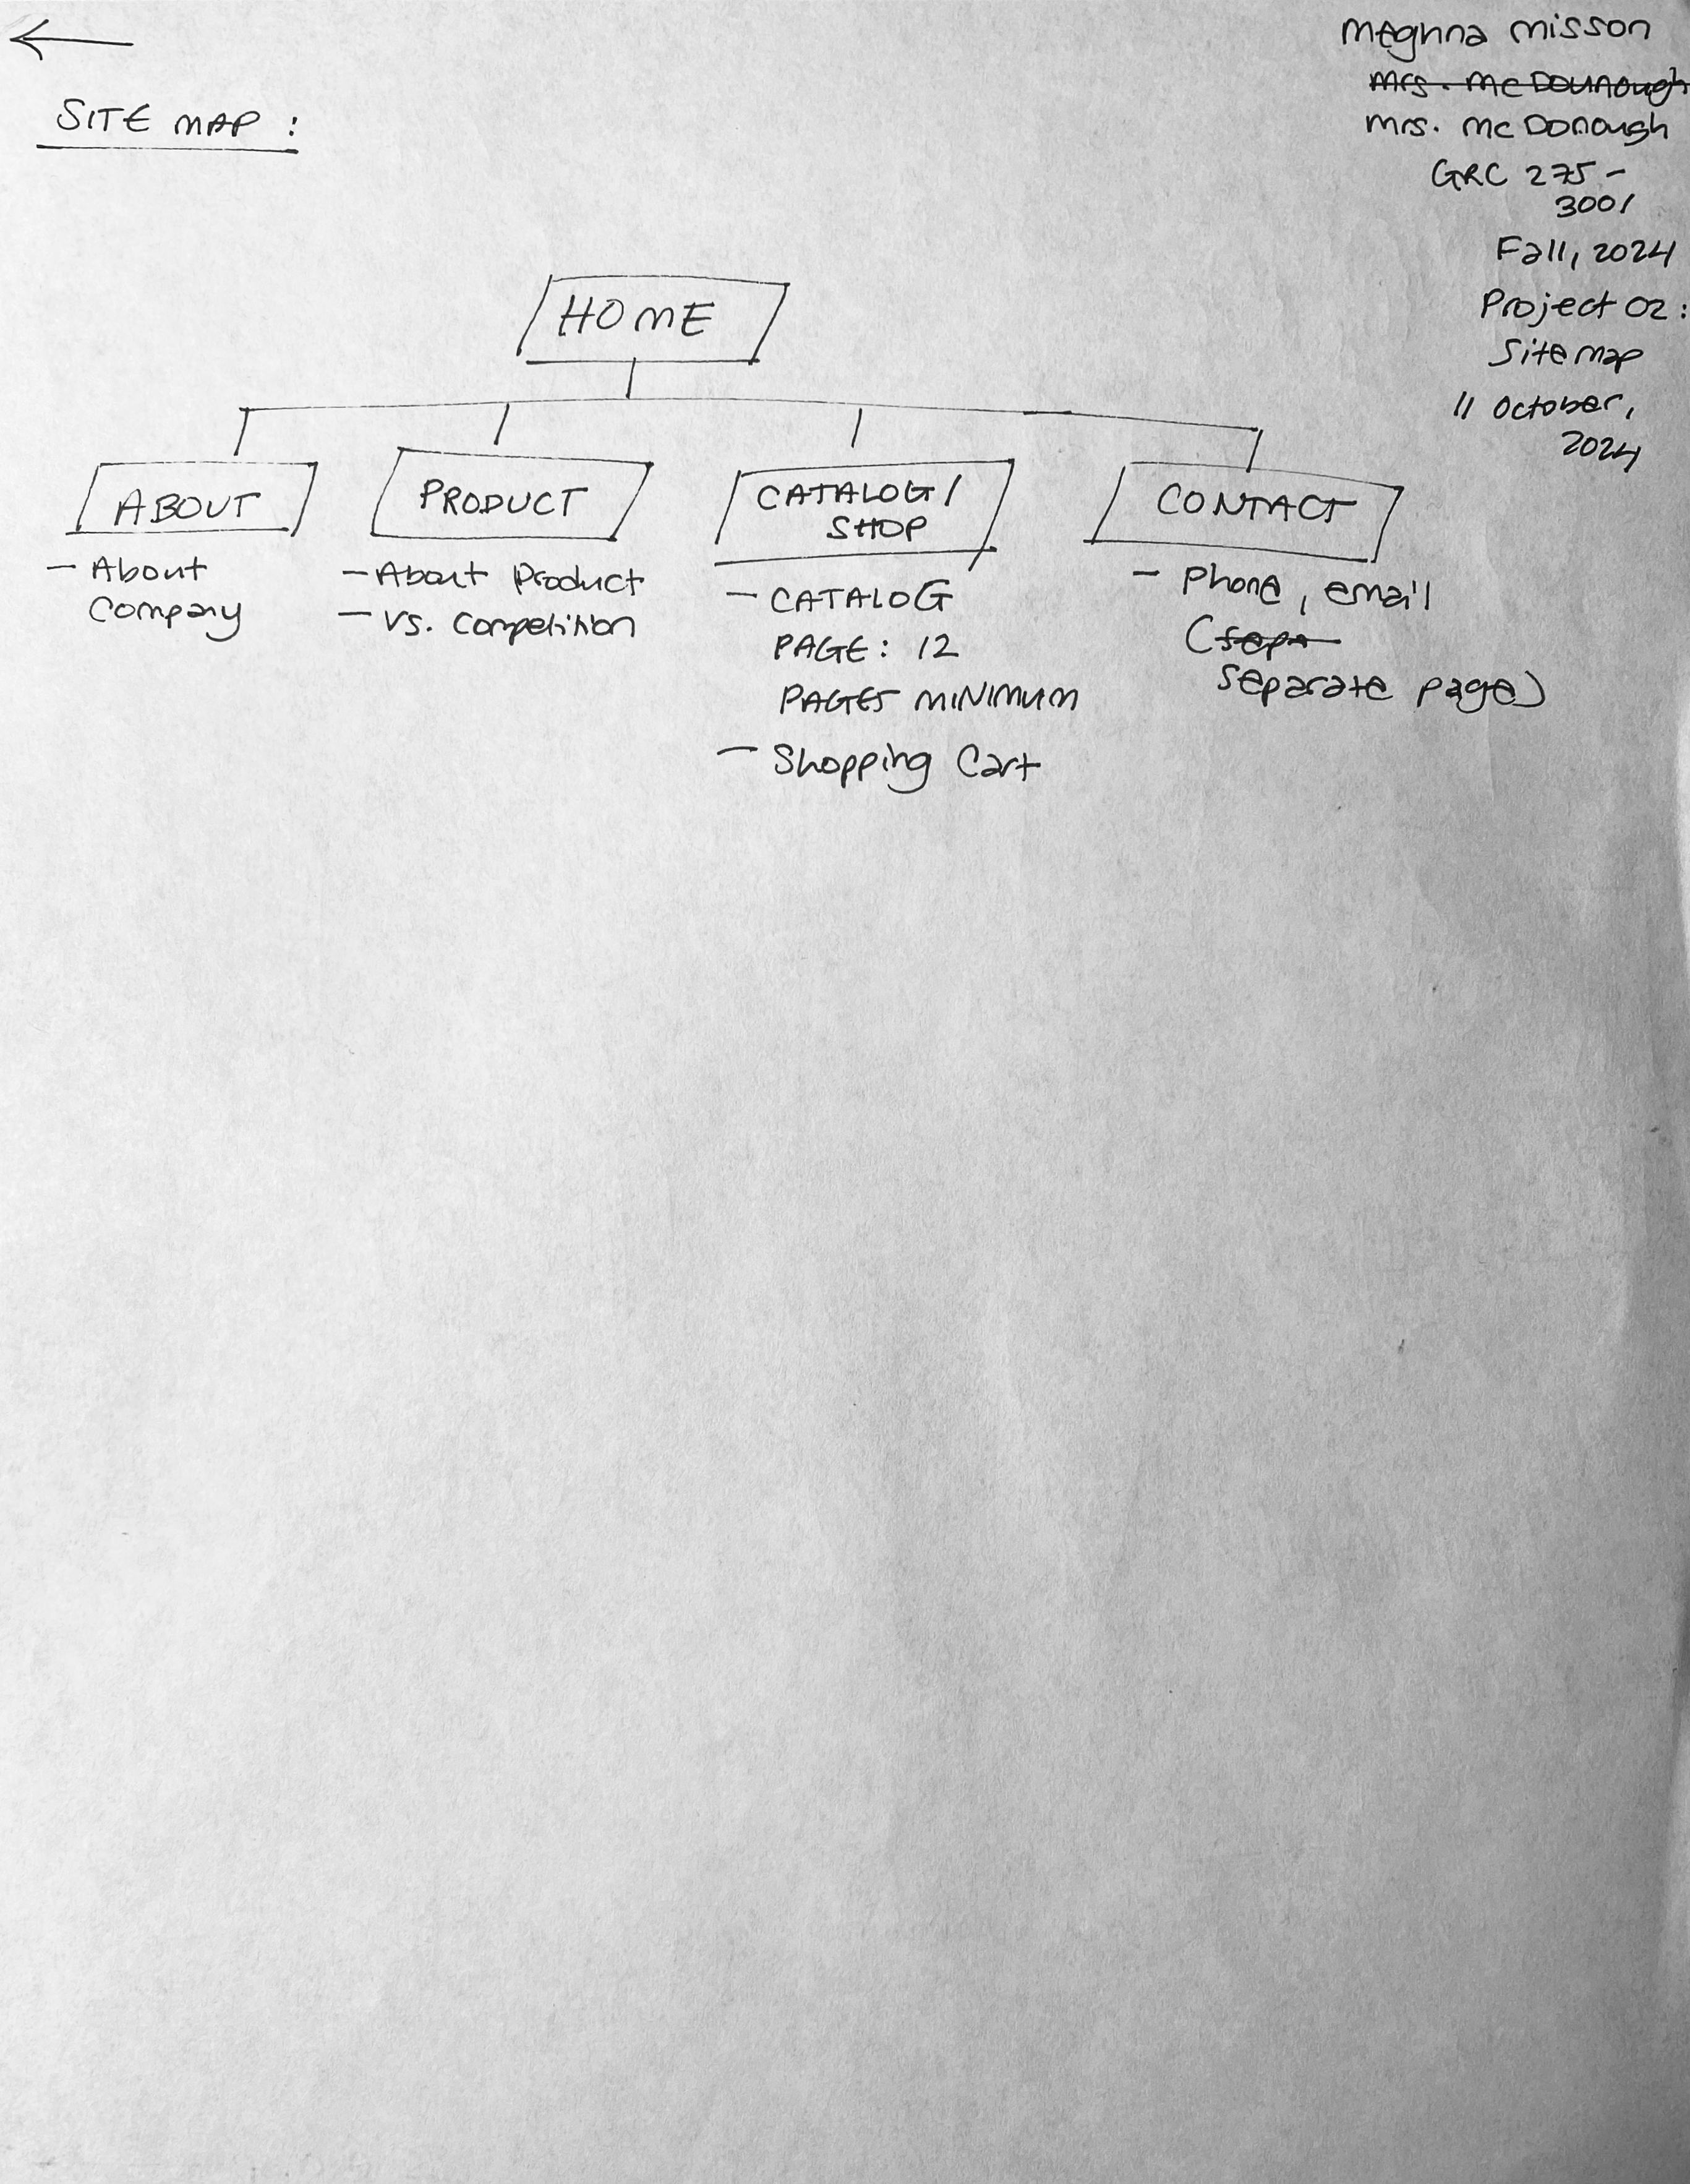 Meghna Misson
Mrs. McDounough
Mrs. McDonough
GRC 275-
3001
Fall, 2024
Project 02:
Sitemap
11 October,
2024
SITE MAP:
HOME
ABOUT
- About
Company
PRODUCT
- About Product
- vs. Competition
CATALOG/
SHOP
- CATALOG
PAGE: 12
PAGES MINIMUM
- Shopping Cart
CONTACT
- Phone, email
(sepa
separate page)